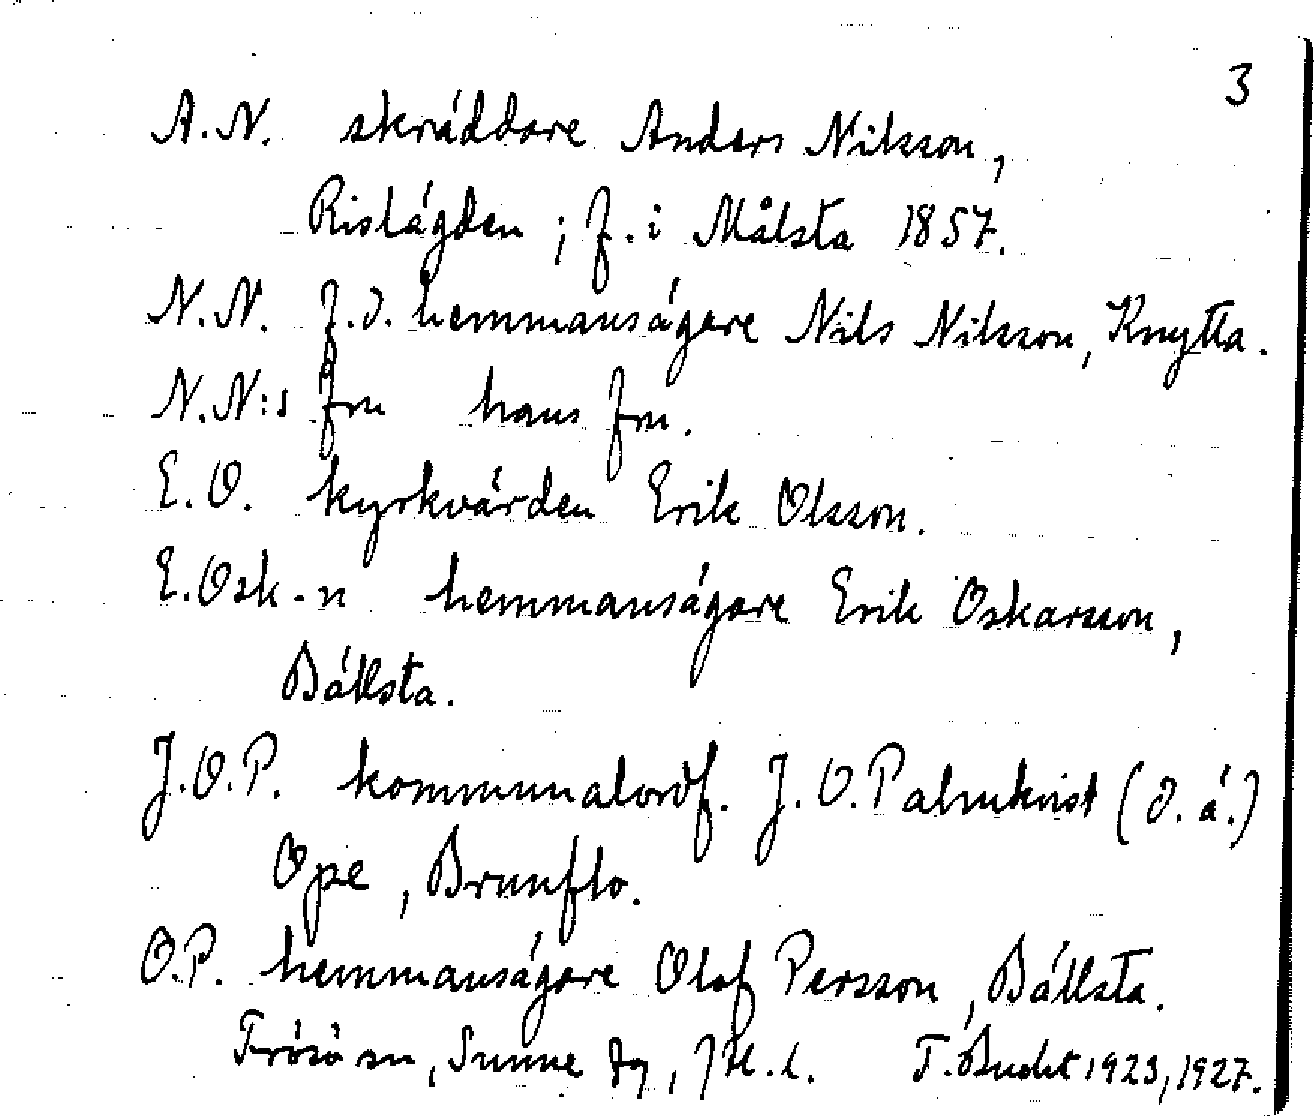 3
A.N. skräddare Anders Nilsson,
Rislägden ; f. i Målsta 1857.
N.N. f.d. hemmansägare Nils Nilsson, Knytta.
N.N:s fru hans fru.
E.O. kyrkvärden Erik Olsson.
E.Osk-n hemmansägare Erik Oskarsson,
Bällsta.
J.O.P. kommunalordf. J.O. Palmkvist (d.ä.)
Ope, Brunflo.
O.P. hemmansägare Olof Persson, Bällsta.
Frösö sn, Sunne tg, Jtl.l. T. Bucht 1923, 1927.